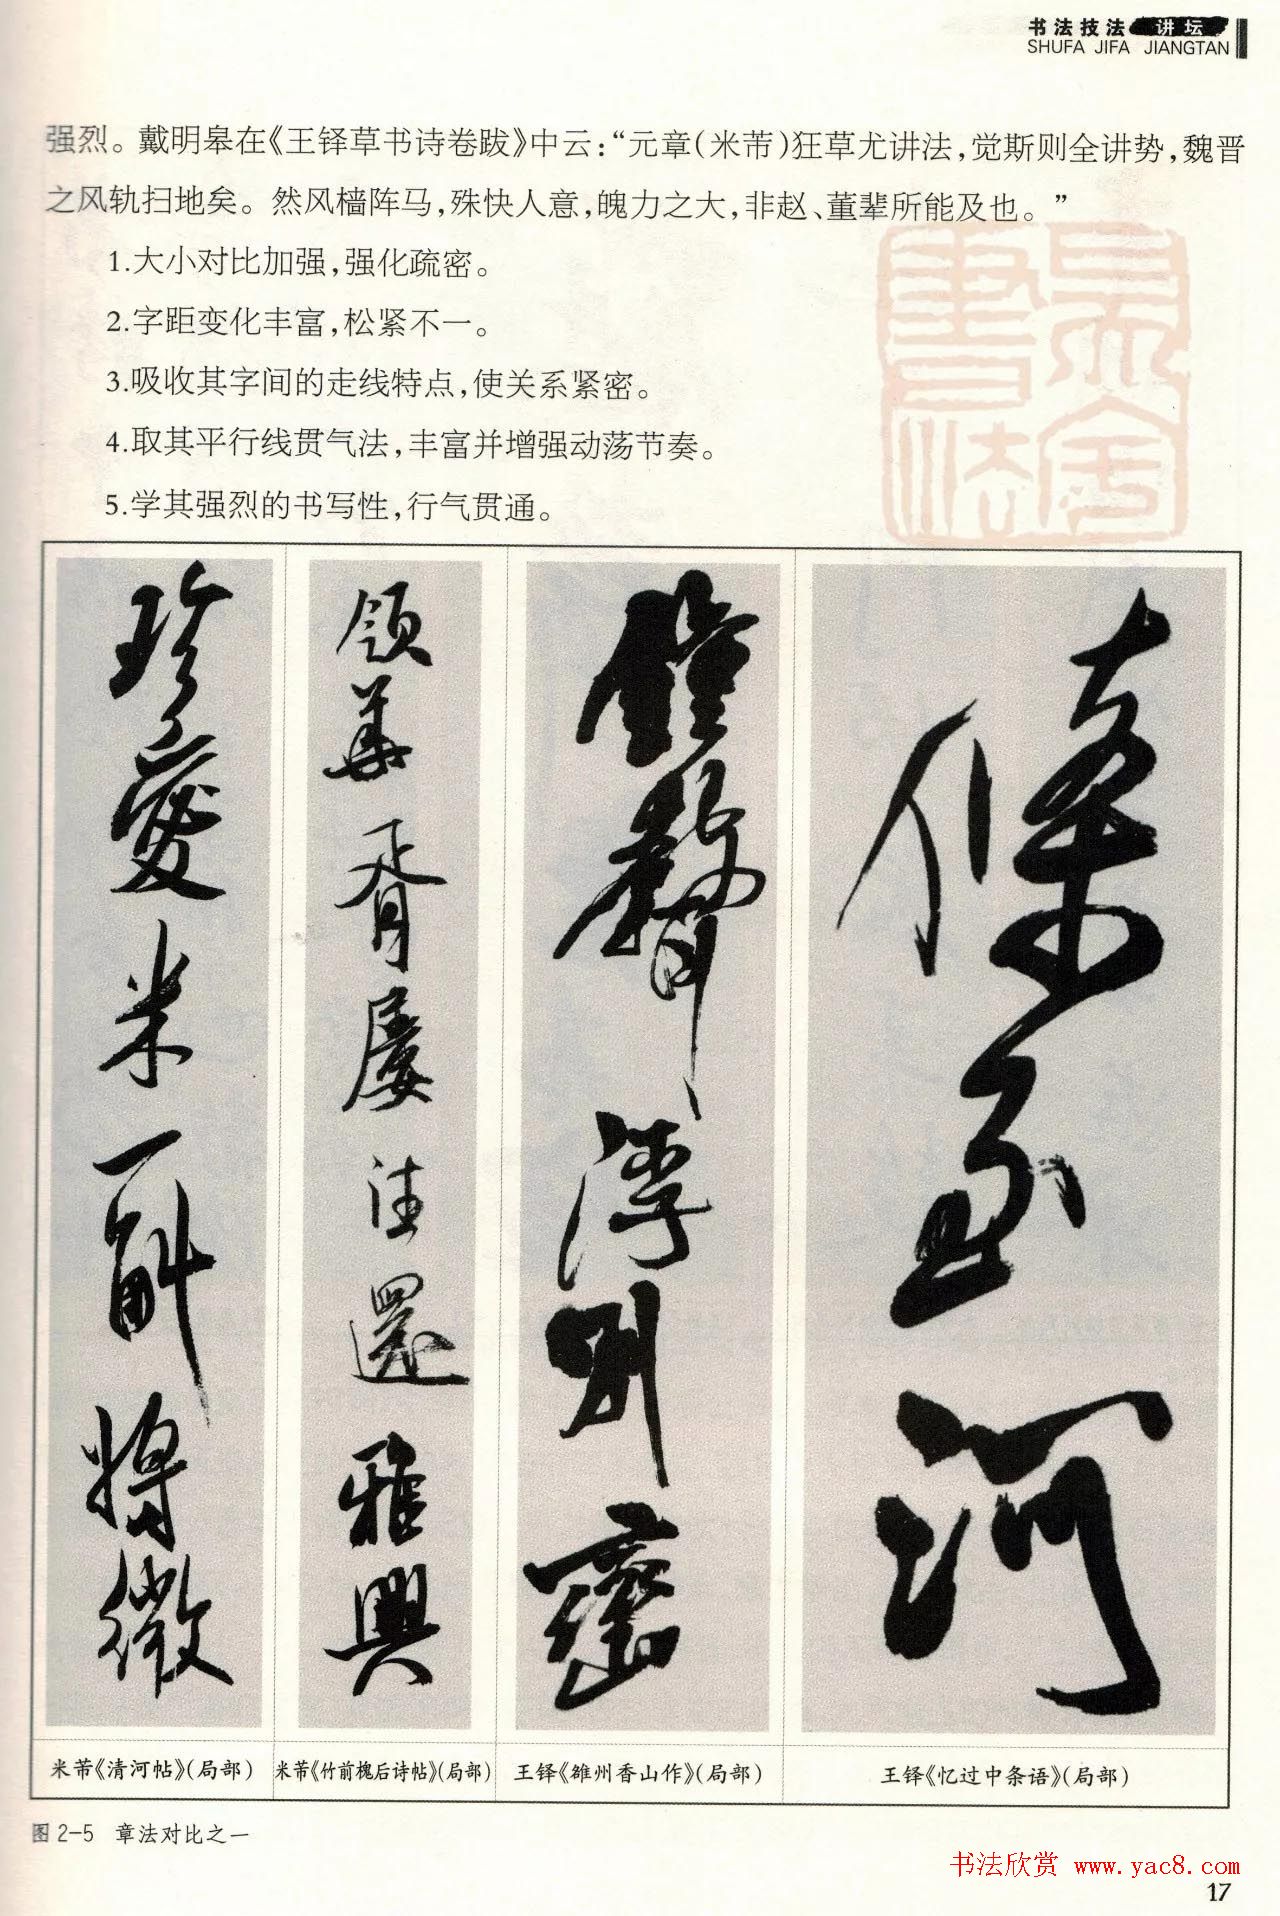 书法技法 讲坛
SHUFA JIFA JIANGTAN
强烈。戴明皋在《王铎草书诗卷跋》中云：“元章（米芾）狂草尤讲法，觉斯则全讲势，魏晋
之风轨扫地矣。然风樯阵马，殊快人意，魄力之大，非赵、董辈所能及也。”
1.大小对比加强，强化疏密。
2.字距变化丰富，松紧不一。
3.吸收其字间的走线特点，使关系紧密。
4.取其平行线贯气法，丰富并增强动荡节奏。
5.学其强烈的书写性，行气贯通。
珍爱米一斛将微
领华胥屡法还雅興
鐘聲浮别巒
條至河
米芾《清河帖》（局部）
米芾《竹前槐后诗帖》（局部）
王铎《雒州香山作》（局部）
王铎《忆过中条语》（局部）
图 2-5 章法对比之一
书法欣赏 www.yac8.com
17